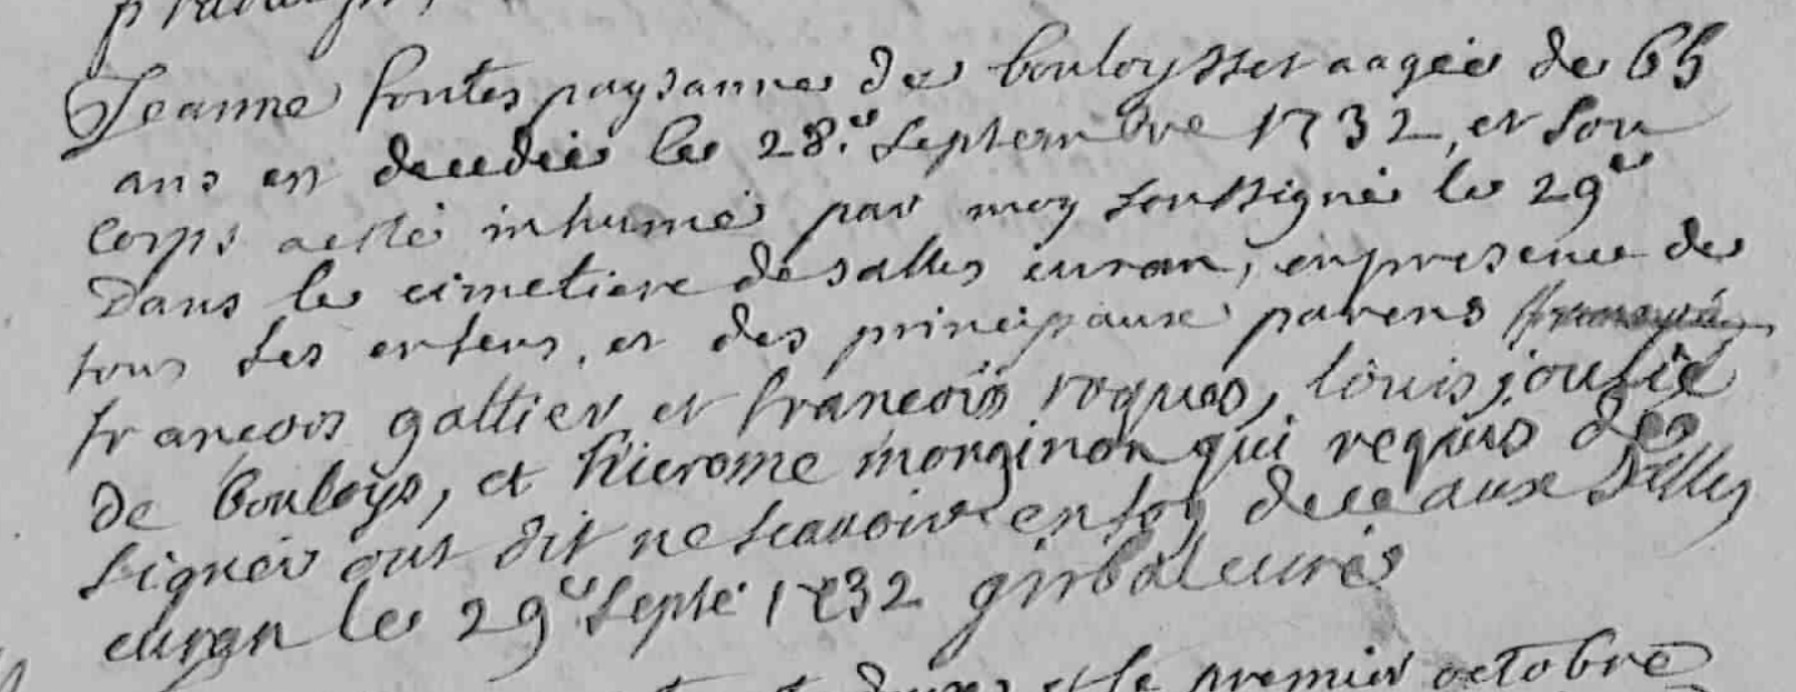 Jeanne fontes paysanne de bouloysset aagée de 65
ans est decedée le 28.e septembre 1732, et son
corps a esté inhumé par moy soussigné le 29e
Dans le cimetiere de salles curan, en presence de
tous ses enfens, et des principaux parens
francois galtier et francois roques, louis joulié
de bouloys, et hierome monginon qui requis de
signer ont dit ne scavoir en foy de ce aux salles
curan le 29e septe 1732 girbal curé
le premier octobre